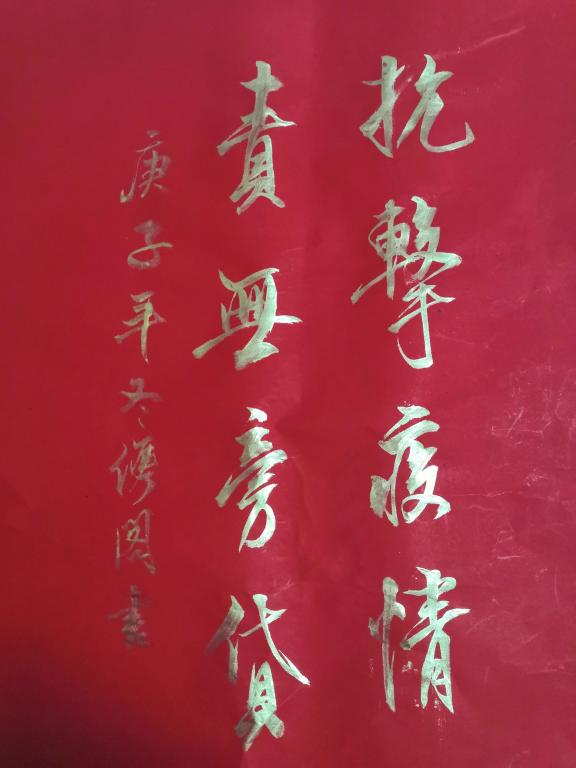 抗擊疫情
責無旁貸
庚子年冬修阁書